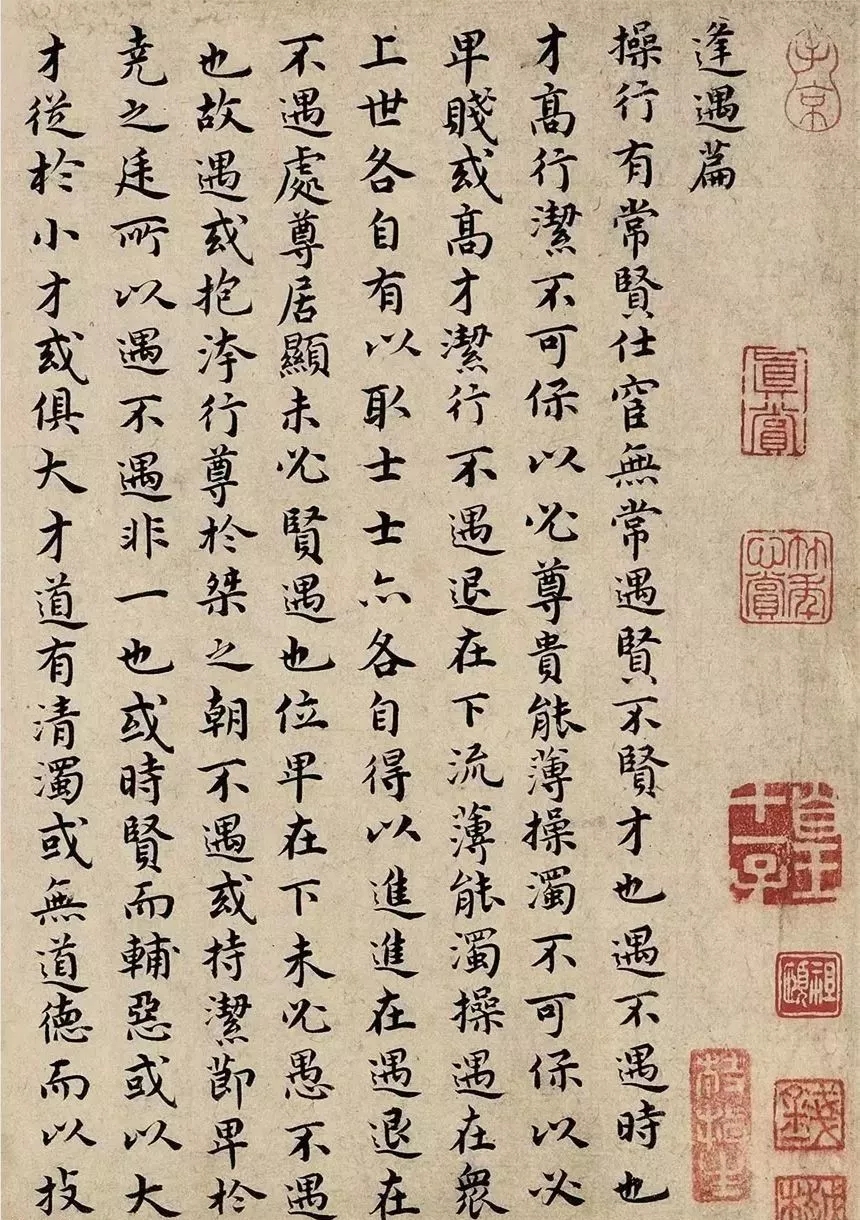 子京
逢遇篇
操行有常賢仕宦無常遇賢不賢才也遇不遇時也
才髙行潔不可保以必尊貴能薄操濁不可保以必
卑賤或髙才潔行不遇退在下流薄能濁操遇在衆
上世各自有以取士士亦各自得以進進在遇退在
不遇處尊居顯未必賢遇也位卑在下未必愚不遇
也故遇或抱洿行尊於桀之朝不遇或持潔節卑於
尭之廷所以遇不遇非一也或時賢而輔惡或以大
才從於小才或俱大才道有清濁或無道德而以技
眞賞